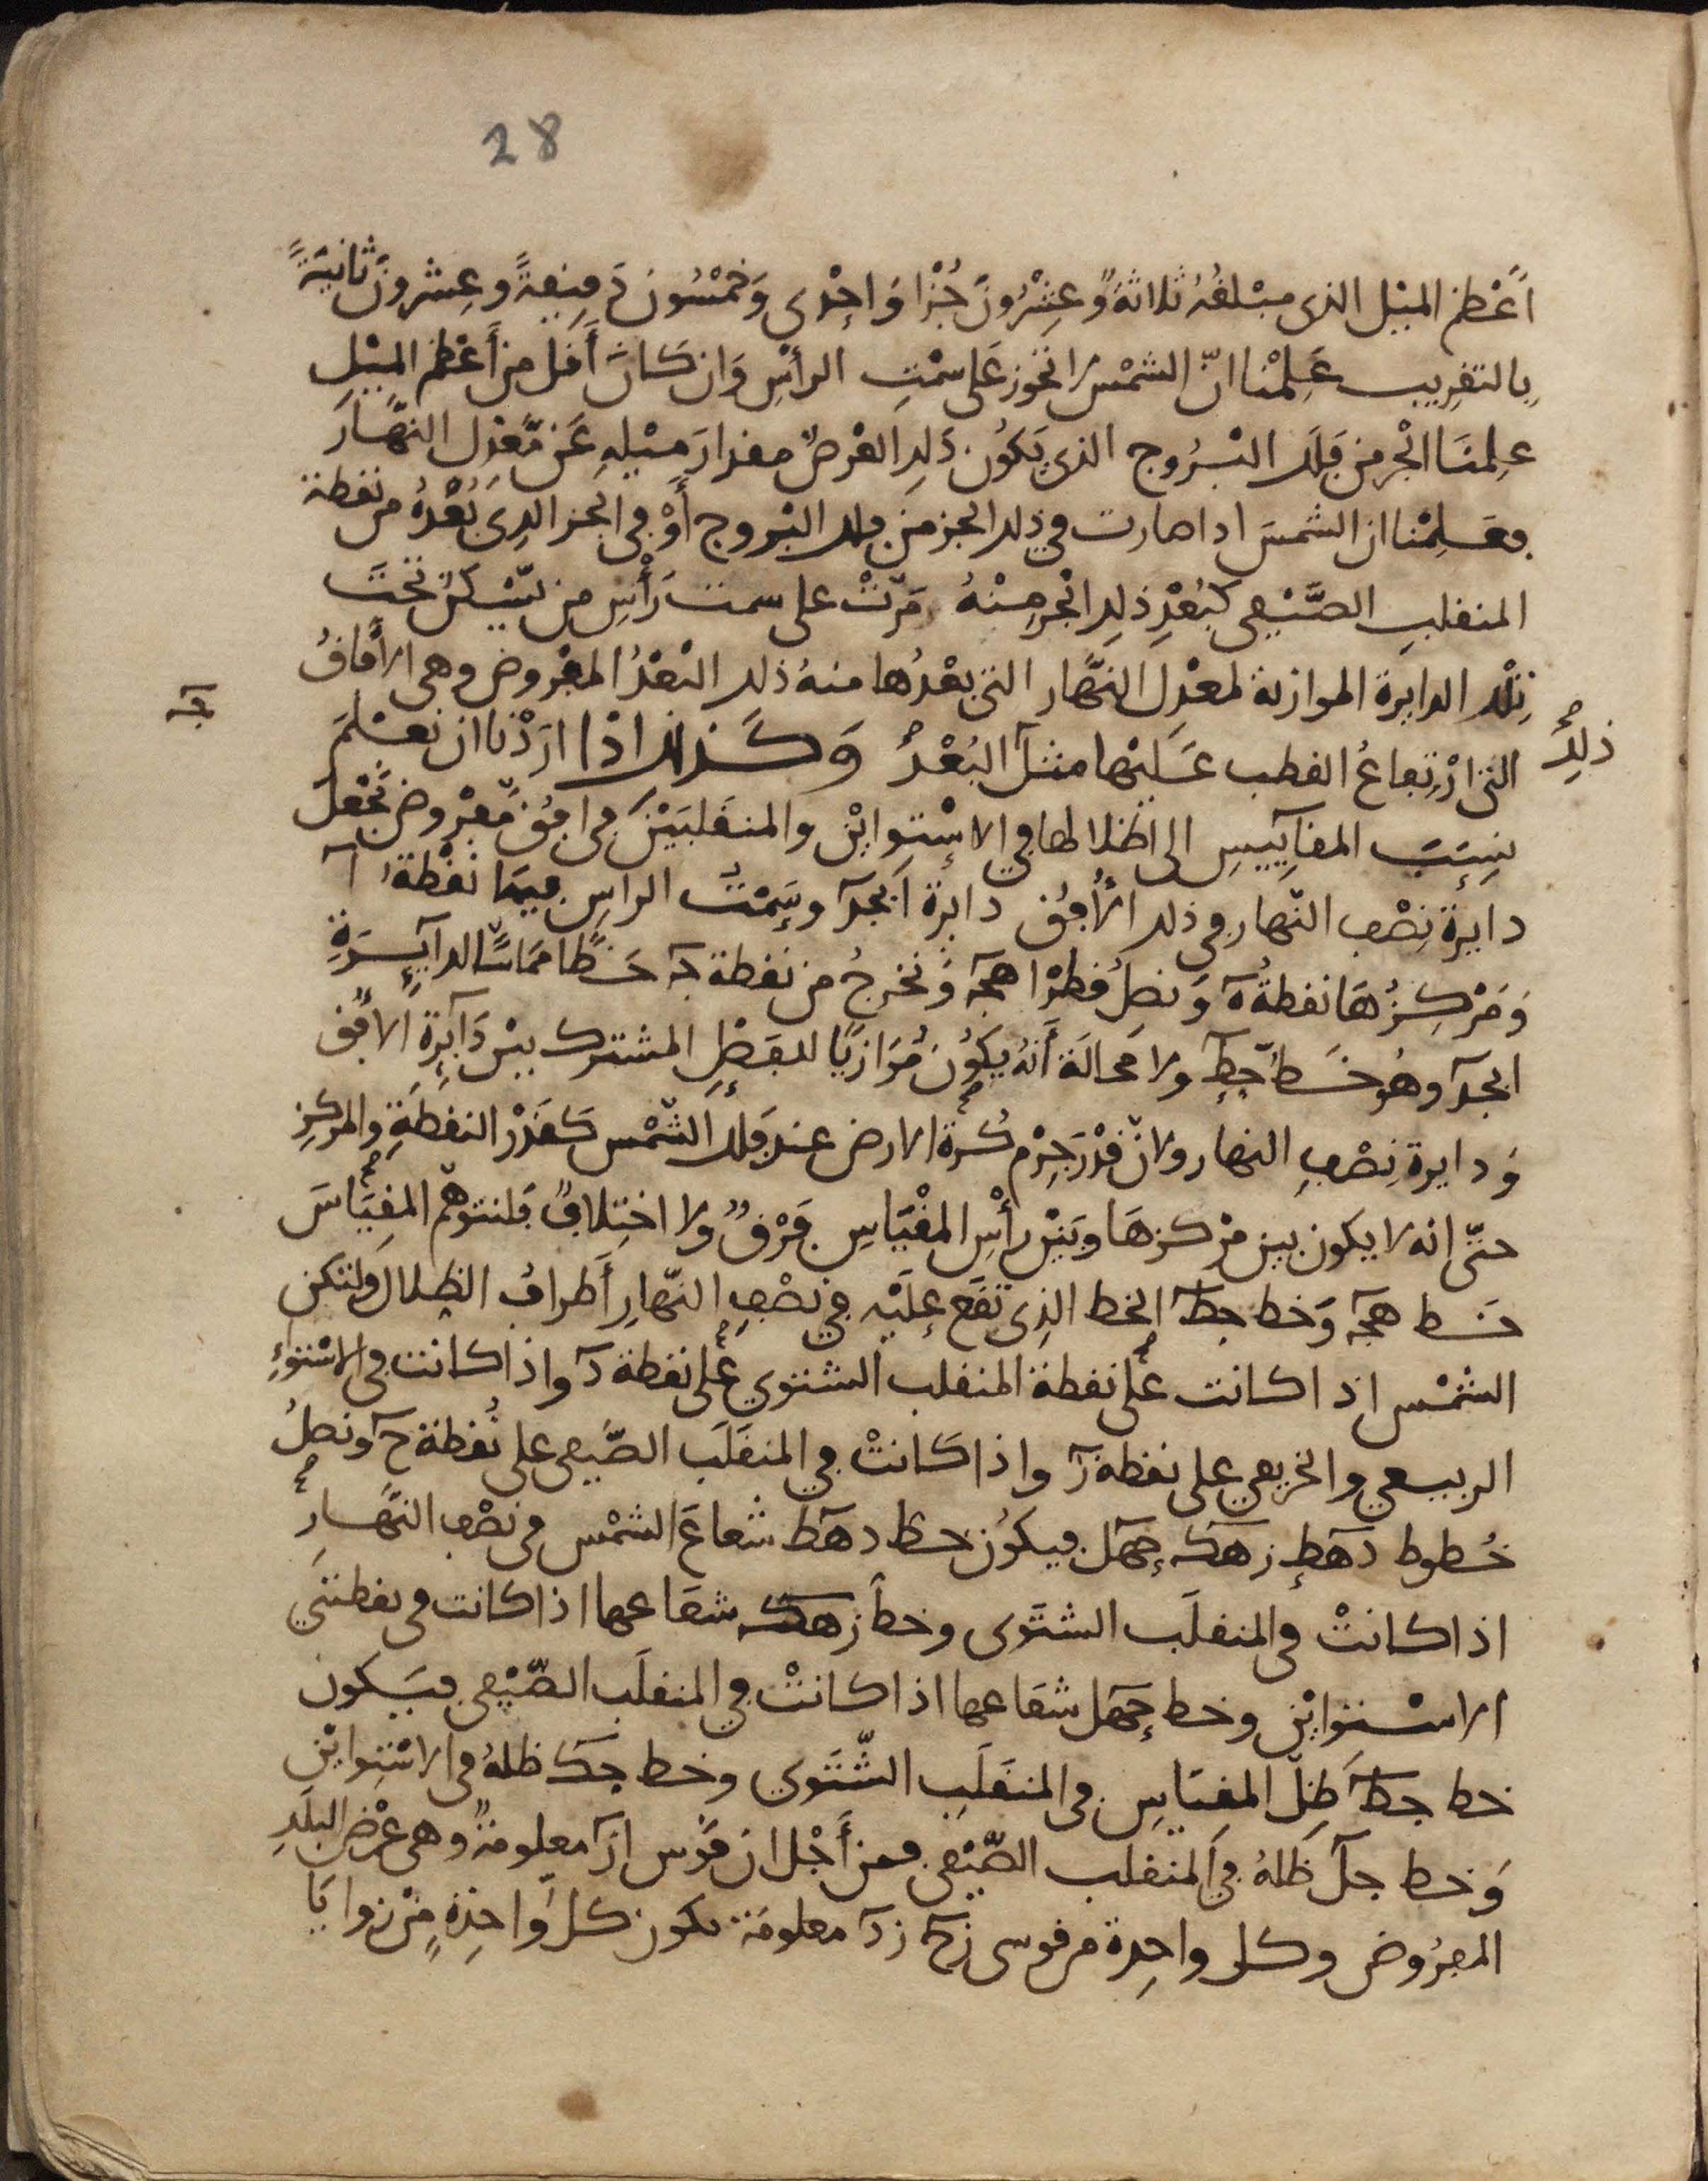 28
أَعْظم المَيْل الذى مبْلغُهُ ثلاثةٌ وعِشْرُونَ جُزْا وَاحْدى وَخمْسُون دَقِيقةً وعِشرونَ ثانيَةً
بالتقرِيب عَلِمْنا انّ الشمْس لا تجُوز عَلى سمْتِ الرأسْ وَان كَانَ أَقل من أَعْظم المَيْلِ
علِمنَا الجزَ من فَلَك البُرُوج الذى يَكُون ذَلك العَرْض مقدارَ مَيْلهِ عَن مُعَدِّل النهَار
فعَلِمْنا ان الشمسَ اذا صارت فى ذلك الجز من فلك البُروج أَوْ فى الجز الذِى بُعْدهُ من نقطة
المنقلبِ الصَّيْفى كبُعْدِ ذلِك الجزِ مِنْهُ مَرّتْ على سمت رَأْسِ من يَسْكنُ تَحتَ
تِلْك الدايرة الموازية لمعَدِّل النّهار التى بعْدُها منهُ ذلك البُعْدُ المفْروض وهى الأفاقُ
التى ارْتِفاعُ القطب عَليْها مثل البُعْدُ وَكَذلك اذا ارَدْنا ان نعْلمَ
ذلِكَ
جَـ
نِسَبَ المقاييسِ الى اظلالها فى الاسْتِوايَيْن والمنقلبَيْن فى افُقٍ مّفْروض نَجْعل
دايرة نِصْف النّهار فى ذلك الأُفُق دايرة ابجد وسَمْتَ الراسِ فيهَا نقْطة ا
وَمَرْكزُهَا نقطةُ ه وَنصِلُ قطْرَ اهج وَنخرجُ من نقطة ج خَطًّا ممَاسًّا لدآيِرَةِ
ابجد وهُو خَط جط ولا محالَة أَنهُ يكوُنُ مُوَازيًا للفصْلِ المشترك بيْن دَآيِرةِ الأفُق
وَدايرة نِصْفِ النهار ولانّ قدْرَ جِرْم كُرة الارض عند فلك الشّمْس كقَدْر النقطَةِ والمركزِ
حتّى انه لا يكون بين مرْكزهَا وبَيْن رأْسِ المقْيَاسِ فَرْقٌ ولا اختِلافٌ فلنتوهّم المِقيَاسَ
خط هج وَخط جط الخط الذِى تقَع عليْه فى نصْفِ النّهارِ أَطرافُ الظلال ولتكن
الشمْس اذا كانت على نقطة المنقلب الشتوي على نقطة د واذا كانت فى الاسْتواءِ
الربيعي والخريفي على نقطة ز واذا كَانتْ في المنقلَب الصّيفى على نُقطة ح ونصِلُ
خُطوط دهط زهك حهل فيكوُن خط دهط شعاعَ الشمْس فى نصْف النّهارِ
اذا كانتْ فى المنقلَب الشتَوى وخط زهك شعَاعها اذا كانت فى نقطتَي
الاسْتوايْن وخط حهل شعَاعها اذا كانتْ فى المنقلَب الصّيْفى فيَكون
خط جط ظِلّ المِقيَاسِ فى المنقَلَبِ الشّتَوى وخط جك ظلهُ فى الاسْتِوايْن
وَخط جل ظلهُ فى المنقلب الصّيْفى فمن أَجْل ان قوْس از معلومةٌ وهى عرْض البلَدِ
المفرُوض وكل واحِدة من قوسى زح زد معلومَة تكون كلُّ وَاحِدةٍ مِنْ زوايَا